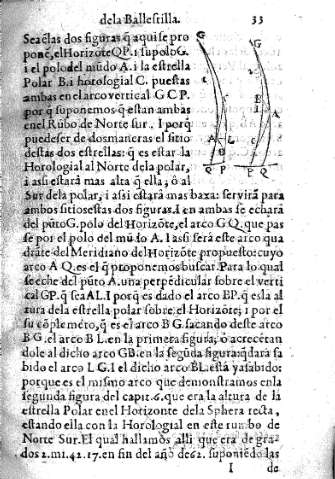 dela Ballestilla. 33
Seãelas dos figuras q̃ aqui se pro
ponẽ, el Horizõte QP. i su polo G.
i el polo del mũdo A. i la estrella
Polar B. i horologial C. puestas
ambas en el arco vertical G C P.
por q̃ suponemos q̃ estan ambas
en el Rũbo de Norte sur. I porq̃
puede ser de dos maneras el sitio
destas dos estrellas: q̃ es estar la
Horologial al Norte dela polar,
i assi estará mas alta q̃ ella; ó al
Sur dela polar, i assi estará mas baxa: servirã para
ambos sitios estas dos figuras. I en ambas se echará
del pũto G. polo del Horizõte, el arco G Q. que pas
se por el polo del mũdo A. I assi será este arco qua
drãte del Meridiano del Horizõte propuesto: cuyo
arco A Q. es el q̃ proponemos buscar. Para lo qual
se eche del pũto A. una perpẽdicular sobre el verti
cal GP. q̃ sea AL. I porq̃ es dado el arco BP. q̃ es la al
tura dela estrella polar sobre el Horizõte; i por el
su cõplemẽto, q̃ es el arco B G. sacando deste arco
B G. el arco B L. en la primera figura, ó acrecẽtan
dole al dicho arco GB. en la segũda figura: q̃dará sa
bido el arco L G. I el dicho arco BL. está ya sabido:
porque es el mismo arco que demonstramos en la
segunda figura del capit. 6. que era la altura de la
estrella Polar en el Horizonte dela Sphera recta,
estando ella con la Horologial en este rumbo de
Norte Sur. El qual hallamos alli que era de gra
dos 2. mi. 42. 17. en fin del año de 62. suponiẽdo las
I de
G
G
C
B
A
L
B
Q P
P Q